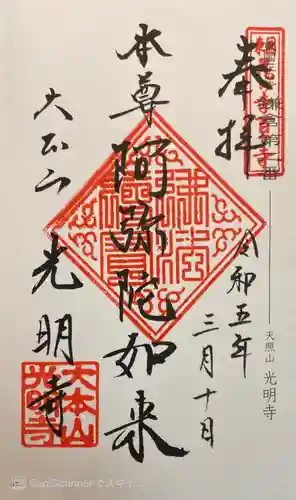 奉拝
令和五年
三月十日
本尊阿弥陀如来
大本山
光明寺
天照山 光明寺
大本山
光明寺
CamScanner でスキャ...